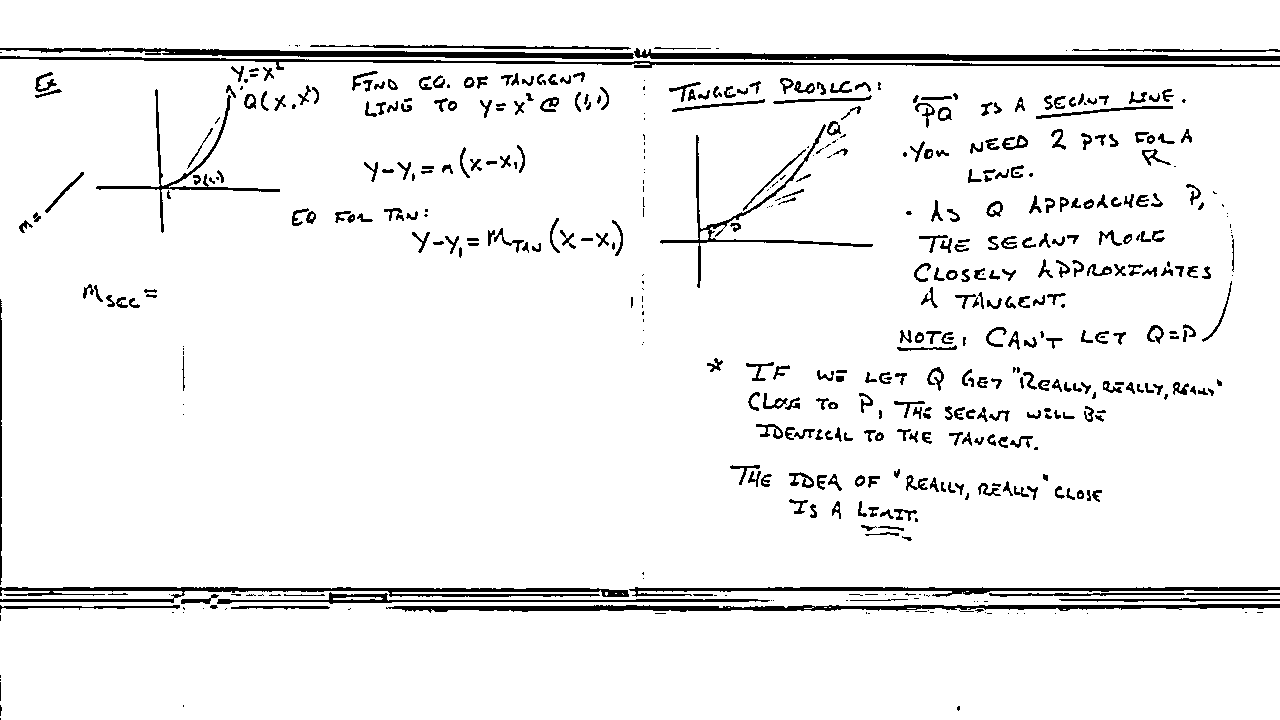 Ex
Y=X²
Q(X,X²)
P(1,1)
1
m=
FIND EQ. OF TANGENT
LINE TO Y=X² @ (1,1)
Y-Y₁=m(X-X₁)
EQ FOR TAN:
Y-Y₁=M_TAN(X-X₁)
M_SEC=
TANGENT PROBLEM:
Q
P
"PQ" IS A SECANT LINE.
·YOU NEED 2 PTS FOR A
LINE.
· AS Q APPROACHES P,
THE SECANT MORE
CLOSELY APPROXIMATES
A TANGENT.
NOTE: CAN'T LET Q=P
* IF WE LET Q GET "REALLY, REALLY, REALLY"
CLOSE TO P, THE SECANT WILL BE
IDENTICAL TO THE TANGENT.
THE IDEA OF "REALLY, REALLY" CLOSE
IS A LIMIT.